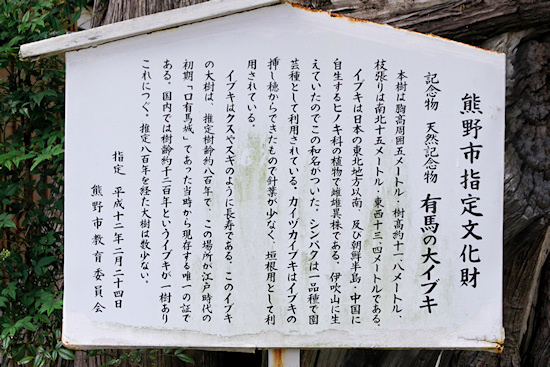 熊野市指定文化財
記念物 天然記念物 有馬の大イブキ
本樹は胸高周囲五メートル・樹高約十一・八メートル・
枝張りは南北十五メートル・東西十三・四メートルである。
イブキは日本の東北地方以南、及び朝鮮半島・中国に
自生するヒノキ科の植物で雌雄異株である。伊吹山に生
えていたのでこの和名がついた。シンパクは一品種で園
芸種として利用されている。カイヅカイブキはイブキの
挿し穂からできたもので針葉が少なく、垣根用として利
用されている。
イブキはクスやスギのように長寿である。このイブキ
の大樹は、推定樹齢約八百年で、この場所が江戸時代の
初期「口有馬城」であった当時から現存する唯一の証で
ある。国内では樹齢約千二百年というイブキが一樹あり
これにつぐ。推定八百年を経た大樹は数少ない。
指定 平成十二年二月二十四日
熊野市教育委員会